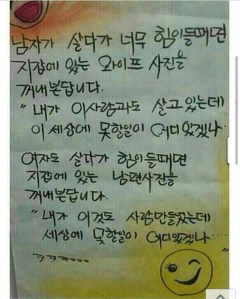 남자가 살다가 너무 힘이들때면
지갑에 있는 와이프 사진을
꺼내본답니다.
"내가 이사람과도 살고 있는데
이 세상에 못할일이 어디있겠나..
여자도 살다가 힘이들때면
지갑에 있는 남편사진을
꺼내본답니다.
"내가 이것도 사람만들었는데
세상에 못할일이 어디있겠나...
ㅋㅋㅋ~~~